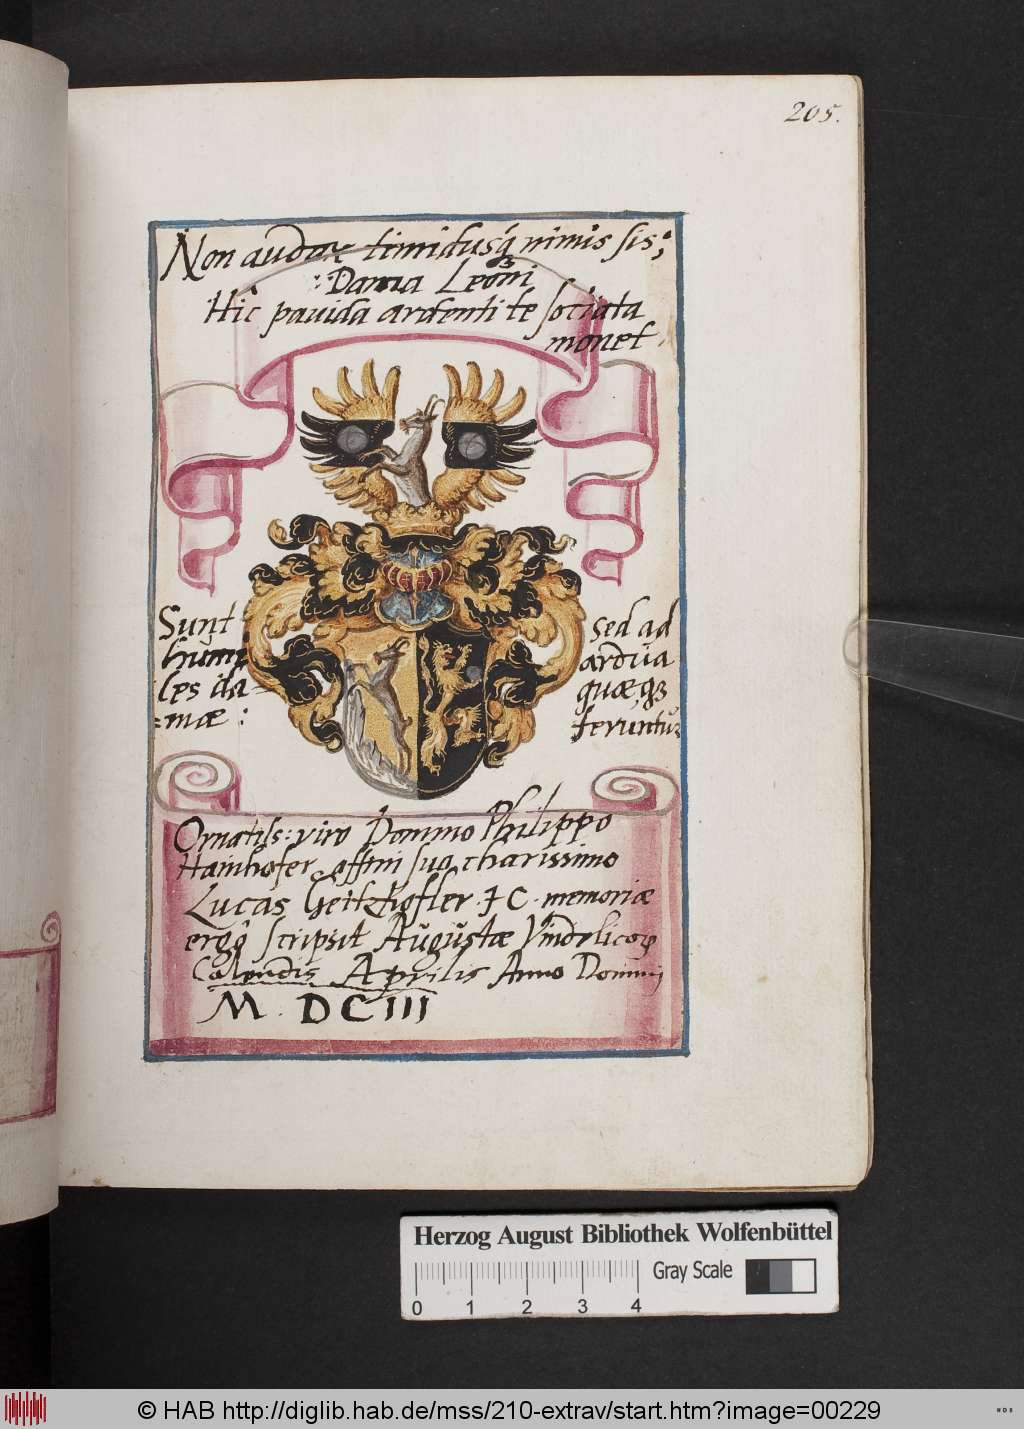 205.
Non audax timidusq́ nimis sis;
: Dama Leoni
Hic pauida ardenti te sociata
monet.
Sunt
humi-
les da=
=mæ :
sed ad
ardua
quæq3
ferunt᷑
Ornatiss: viro Domino Philippo
Hainhofer affini suo charissimo
Lucas Geitzkofler J C. memoriæ
ergo scripsit Augustæ Vindelicoꝝ
Calendis Aprilis Anno Domini
M. DCIII
Herzog August Bibliothek Wolfenbüttel
Gray Scale
0 1 2 3 4
© HAB http://diglib.hab.de/mss/210-extrav/start.htm?image=00229
HAB